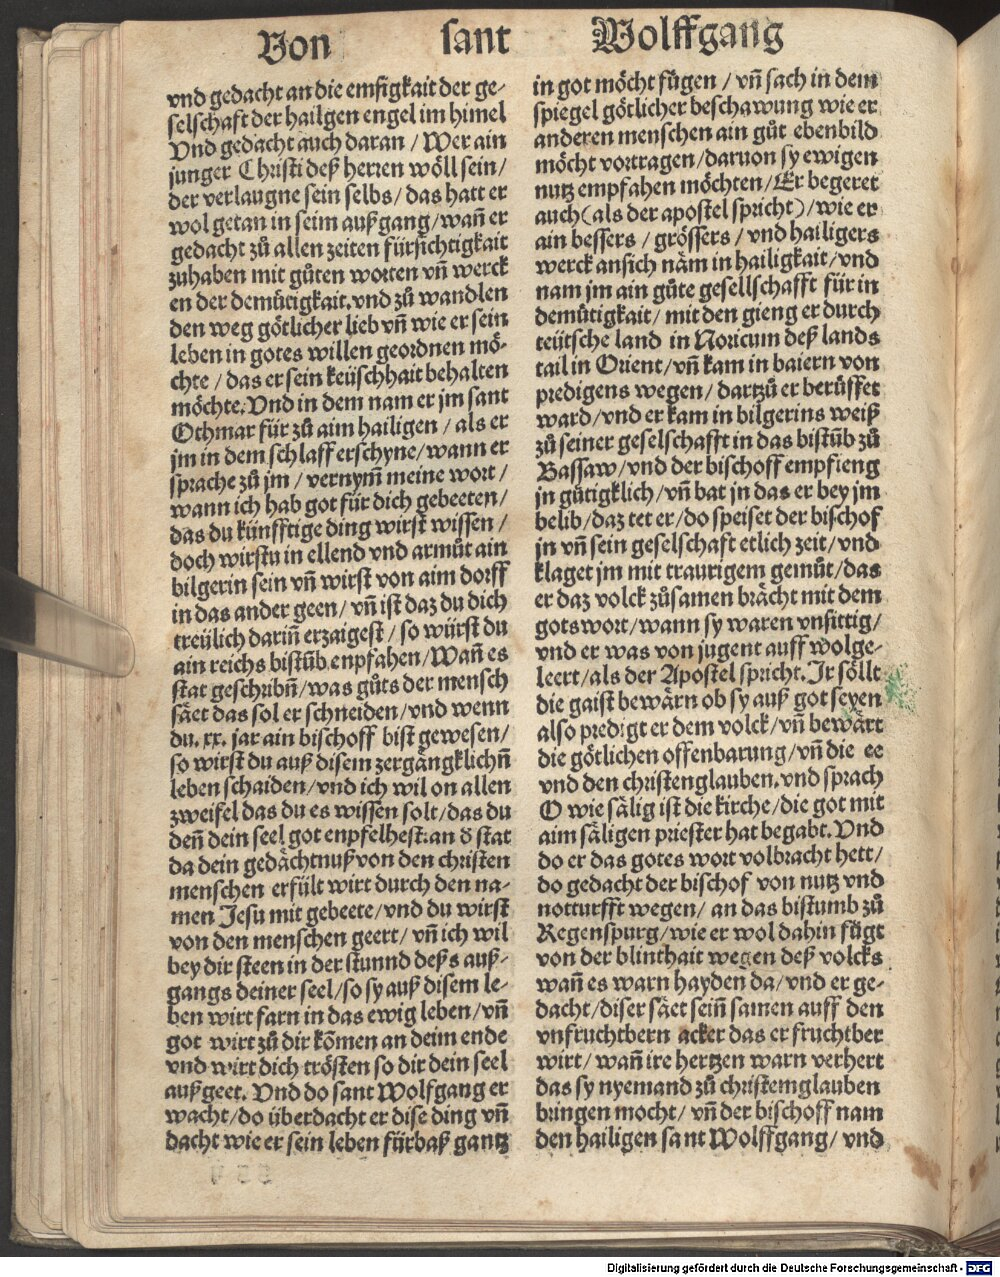 Von sant Wolffgang
vnd gedacht an die emsigkait der ge-
selschaft der hailgen engel im himel
Vnd gedacht auch daran / Wer ain
junger Christi deß herren wöll sein /
der verlaugne sein selbs / das hatt er
wol getan in seim außgang / wañ er
gedacht zů allen zeiten fürsichtigkait
zuhaben mit gůten worten vñ werck
en der demütigkait. vnd zů wandlen
den weg götlicher lieb vñ wie er sein
leben in gotes willen geordnen mö-
chte / das er sein keüschhait behalten
möchte. Vnd in dem nam er jm sant
Othmar für zů aim hailigen / als er
jm in dem schlaff erschyne / wann er
sprache zů jm / vernym̄ meine wort /
wann ich hab got für dich gebeeten /
das du künfftige ding wirst wissen /
doch wirstu in ellend vnd armůt ain
bilgerin sein vñ wirst von aim dorff
in das ander geen / vñ ist daz du dich
treülich darin̄ erzaigest / so würst du
ain reichs bistūb enpfahen / Wañ es
stat geschribñ / was gůts der mensch
säet das sol er schneiden / vnd wenn
du. xx. jar ain bischoff bist gewesen /
so wirst du auß disem zergängklichñ
leben schaiden / vnd ich wil on allen
zweifel das du es wissen solt / das du
deñ dein seel got enpfelhest: an d̕ stat
da dein gedächtnuß von den christen
menschen erfült wirt durch den na-
men Jesu mit gebeete / vnd du wirst
von den menschen geert / vñ ich wil
bey dir steen in der stunnd deß auß-
gangs deiner seel / so sy auß disem le-
ben wirt farn in das ewig leben / vñ
got wirt zů dir kōmen an deim ende
vnd wirt dich trösten so dir dein seel
außgeet. Vnd do sant Wolfgang er
wacht / do überdacht er dise ding vñ
dacht wie er sein leben fürbaß gantz
in got möcht fügen / vñ sach in dem
spiegel götlicher beschawung wie er
anderen menschen ain gůt ebenbild
möcht vortragen / daruon sy ewigen
nutz empfahen möchten / Er begeret
auch (als der apostel spricht) / wie er
ain bessers / grössers / vnd hailigers
werck ansich näm in hailigkait / vnd
nam jm ain gůte gesellschafft für in
demütigkait / mit den gieng er durch
teütsche land in Noricum deß lands
tail in Orient / vñ kam in baiern von
predigens wegen / dartzů er berüffet
ward / vnd er kam in bilgerins weiß
zů seiner geselschafft in das bistūb zů
Bassaw / vnd der bischoff empfieng
jn gütigklich / vñ bat jn das er bey jm
belib / daz tet er / do speiset der bischof
jn vñ sein geselschaft etlich zeit / vnd
klaget jm mit traurigem gemüt / das
er daz volck zůsamen brächt mit dem
gotswort / wann sy waren vnsittig /
vnd er was von jugent auff wolge-
leert / als der Apostel spricht. Jr söllt
die gaist bewärn ob sy auß got seyen
also predigt er dem volck / vñ bewärt
die götlichen offenbarung / vñ die ee
vnd den christenglauben. vnd sprach
O wie sälig ist die kirche / die got mit
aim säligen priester hat begabt. Vnd
do er das gotes wort volbracht hett /
do gedacht der bischof von nutz vnd
notturfft wegen / an das bistumb zů
Regenspurg / wie er wol dahin fügt
von der blinthait wegen deß volcks
wañ es warn hayden da / vnd er ge-
dacht / diser säet sein̄ samen auff den
vnfruchtbern acker das er fruchtber
wirt / wañ ire hertzen warn verhert
das sy nyemand zů christemglauben
bringen mocht / vñ der bischoff nam
den hailigen sant Wolffgang / vnd
Digitalisierung gefördert durch die Deutsche Forschungsgemeinschaft - DFG